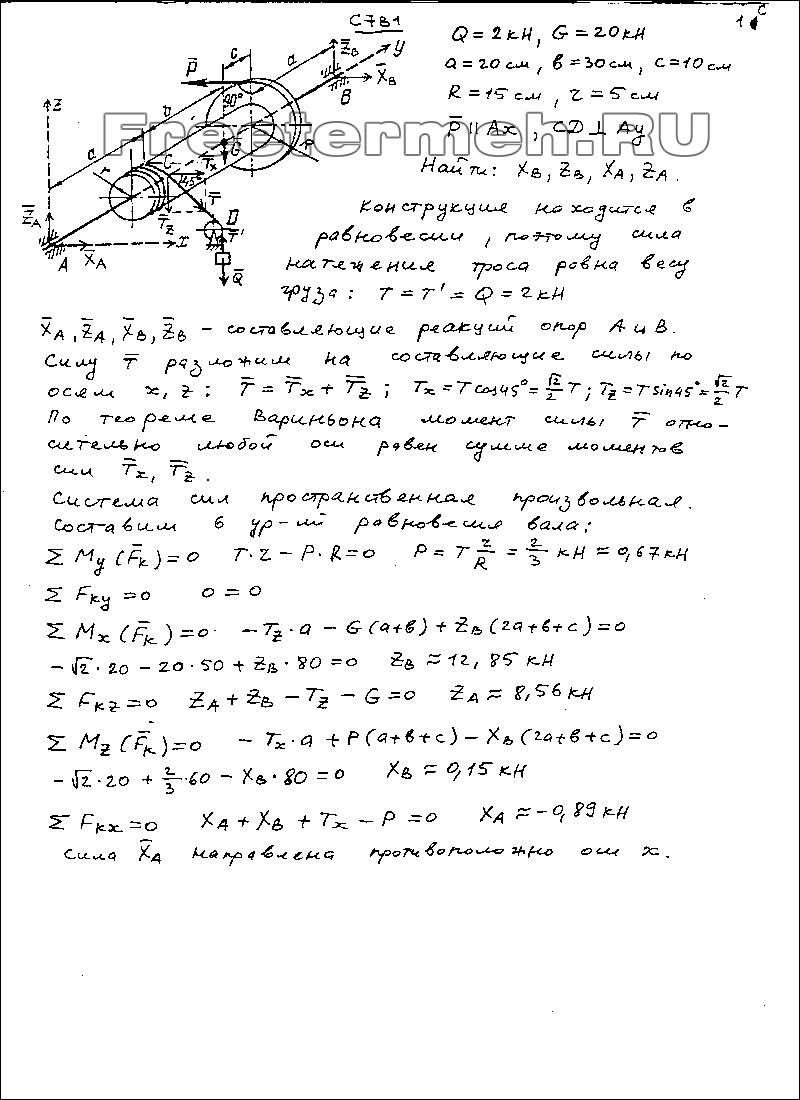 С7В1
1 С
Q = 2 кН, G = 20 кН
a = 20 см, в = 30 см, c = 10 см
R = 15 см, r = 5 см
P̄ ∥ Ax, CD ⊥ Ay
Найти: X_B, Z_B, X_A, Z_A.
Freetermeh.RU
P̄
c
a
Z̄_B
y
X̄_B
B
90°
в
z
a
r
C
T̄_x
G̅
R
45°
T̄
T̄_z
D
T̄'
Q̄
Z̄_A
A
X̄_A
x
Конструкция находится в
равновесии, поэтому сила
натяжения троса равна весу
груза: T = T' = Q = 2 кН
X̄_A, Z̄_A, X̄_B, Z̄_B – составляющие реакций опор А и В.
Силу T̄ разложим на составляющие силы по
осям x, z: T̄ = T̄_x + T̄_z; T_x = T cos45° = √2/2 T; T_z = T sin45° = √2/2 T
По теореме Вариньона момент силы T̄ отно-
сительно любой оси равен сумме моментов
сил T̄_x, T̄_z.
Система сил пространственная произвольная.
Составим 6 ур-ий равновесия вала:
Σ M_y (F̄_k) = 0 T·r – P·R = 0 P = T r/R = 2/3 кН ≈ 0,67 кН
Σ F_ky = 0 0 = 0
Σ M_x (F̄_k) = 0 – T_z·a – G(a+в) + Z_B(2a+в+c) = 0
–√2·20 – 20·50 + Z_B·80 = 0 Z_B ≈ 12,85 кН
Σ F_kz = 0 Z_A + Z_B – T_z – G = 0 Z_A ≈ 8,56 кН
Σ M_z (F̄_k) = 0 – T_x·a + P(a+в+c) – X_B(2a+в+c) = 0
–√2·20 + 2/3·60 – X_B·80 = 0 X_B ≈ 0,15 кН
Σ F_kx = 0 X_A + X_B + T_x – P = 0 X_A ≈ –0,89 кН
Сила X̄_A направлена противоположно оси x.